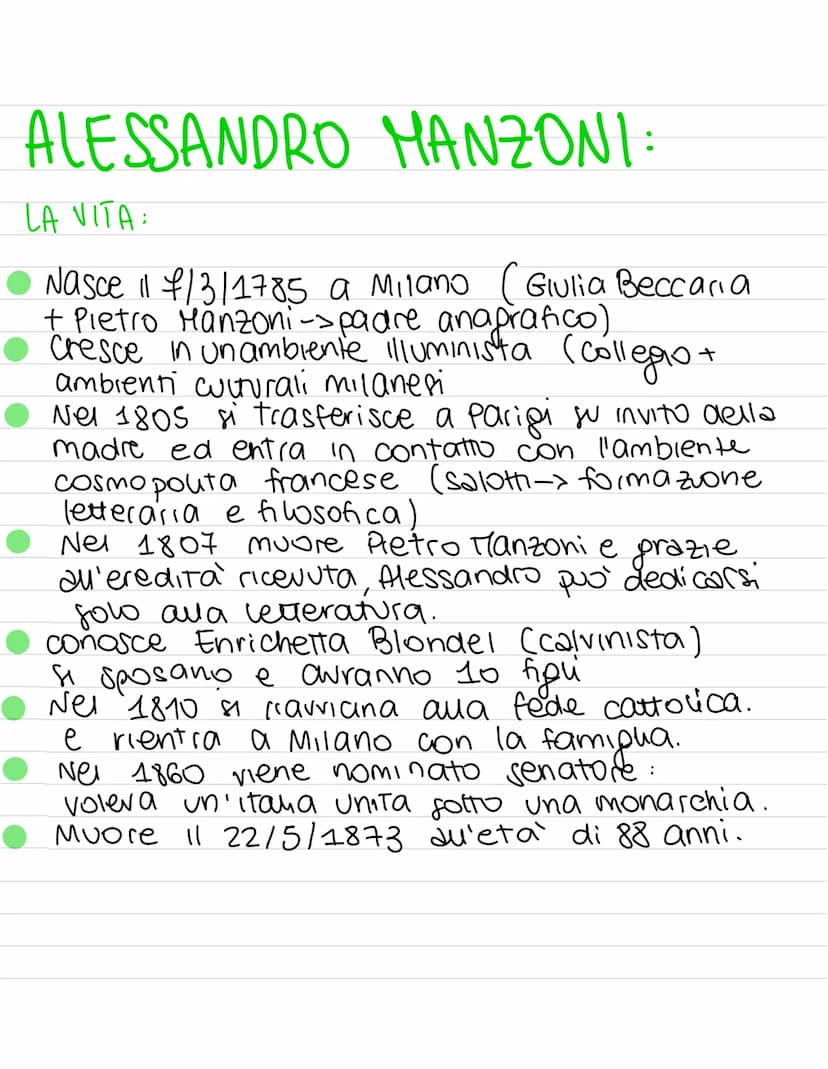 ALESSANDRO MANZONI:
LA VITA:
Nasce il 7/3/1785 a Milano (Giulia Beccaria
+ Pietro Manzoni -> padre anagrafico)
Cresce in un ambiente illuminista (collegio +
ambienti culturali milanesi
Nel 1805 si trasferisce a Parigi su invito della
madre ed entra in contatto con l'ambiente
cosmopolita francese (salotti -> formazione
letteraria e filosofica)
Nel 1807 muore Pietro Manzoni e grazie
all'eredità ricevuta, Alessandro può dedicarsi
solo alla letteratura.
conosce Enrichetta Blondel (calvinista)
si sposano e avranno 10 figli
Nel 1810 si riavvicina alla fede cattolica.
e rientra a Milano con la famiglia.
Nel 1860 viene nominato senatore:
voleva un'italia unita sotto una monarchia.
Muore il 22/5/1873 all'età di 88 anni.